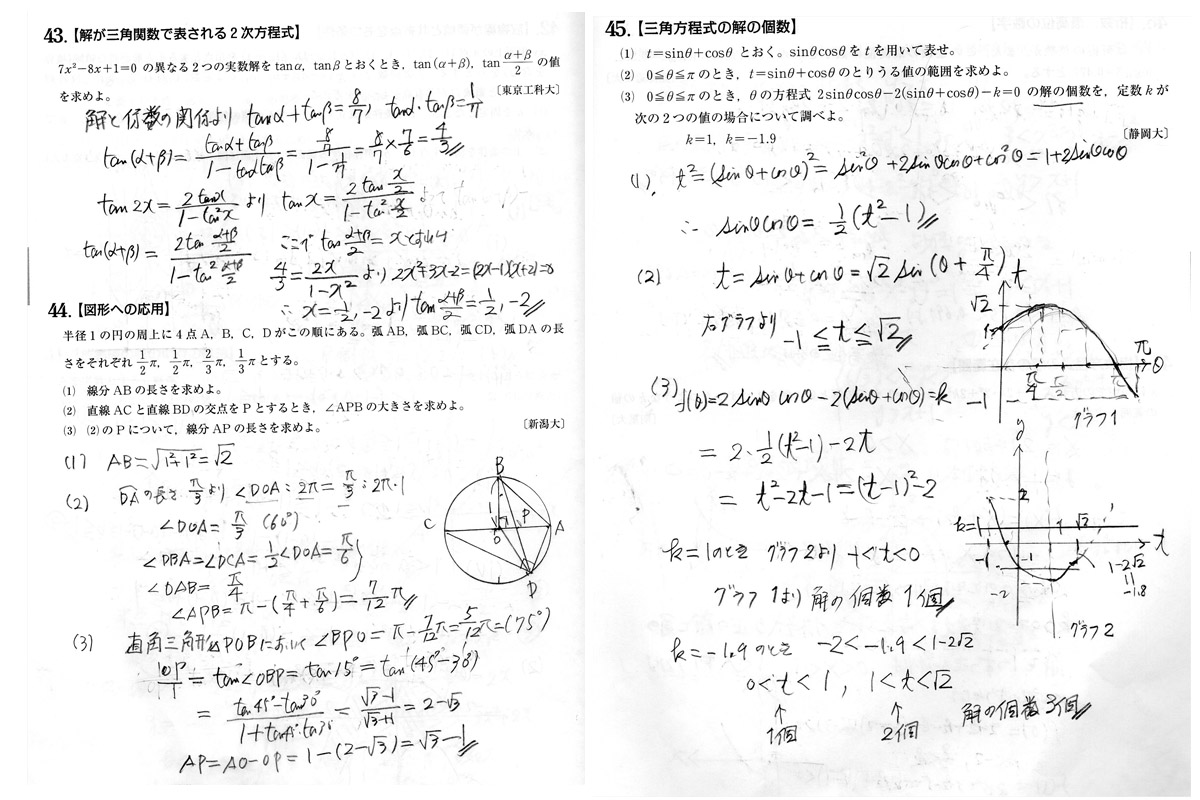 43.【解が三角関数で表される2次方程式】
7x²−8x+1=0 の異なる2つの実数解を tanα, tanβ とおくとき, tan(α+β), tan (α+β)/2 の値
を求めよ。 〔東京工科大〕
解と係数の関係より tanα+tanβ=8/7, tanα・tanβ=1/7
tan(α+β)= (tanα+tanβ)/(1−tanαtanβ) = (8/7)/(1−1/7) = 8/7×7/6=4/3
tan2x= 2tanx/(1−tan²x) より tanx= (2tan x/2)/(1−tan² x/2) よって
tan(α+β)= (2tan (α+β)/2)/(1−tan² (α+β)/2) ここで tan (α+β)/2 = xとすれば
4/3= 2x/(1−x²) より 2x²+3x−2=(2x−1)(x+2)=0
∴ x=1/2, −2 より tan (α+β)/2 = 1/2, −2
44.【図形への応用】
半径1の円の周上に4点A, B, C, Dがこの順にある。弧AB, 弧BC, 弧CD, 弧DAの長
さをそれぞれ 1/2π, 1/2π, 2/3π, 1/3π とする。
(1) 線分ABの長さを求めよ。
(2) 直線ACと直線BDの交点をPとするとき, ∠APBの大きさを求めよ。
(3) (2)のPについて, 線分APの長さを求めよ。 〔新潟大〕
(1) AB=√(1²+1²)=√2
(2) DAの長さ π/3 より ∠DOA : 2π = π/3 : 2π・1
∠DOA= π/3 (60°)
∠DBA=∠DCA= 1/2∠DOA= π/6 }
∠OAB= π/4
∠APB= π−(π/4+π/6)= 7/12 π
B
C
O
P
A
D
1
(3) 直角三角形△POBにおいて ∠BPO = π−7/12π=5/12π=(75°)
OP/1 = tan∠OBP=tan15°=tan(45°−30°)
= (tan45°−tan30°)/(1+tan45°・tan30°) = (√3−1)/(√3+1) = 2−√3
AP=AO−OP= 1−(2−√3)=√3−1
45.【三角方程式の解の個数】
(1) t=sinθ+cosθ とおく。sinθcosθ を t を用いて表せ。
(2) 0≦θ≦π のとき, t=sinθ+cosθ のとりうる値の範囲を求めよ。
(3) 0≦θ≦π のとき, θ の方程式 2sinθcosθ−2(sinθ+cosθ)−k=0 の解の個数を, 定数 k が
次の2つの値の場合について調べよ。
k=1, k=−1.9 〔静岡大〕
(1). t²=(sinθ+cosθ)²= sin²θ+2sinθcosθ+cos²θ=1+2sinθcosθ
∴ sinθcosθ= 1/2(t²−1)
(2) t=sinθ+cosθ=√2 sin(θ+π/4)
右グラフより −1≦t≦√2
t
√2
1
−1
π/4
π/2
π
θ
グラフ1
(3) f(θ)=2sinθcosθ−2(sinθ+cosθ)=k
= 2・1/2(t²−1)−2t
= t²−2t−1=(t−1)²−2
y
2
k=1
−1
−1
1
√2
t
−2
1−2√2
=
−1.8
グラフ2
k=1のとき グラフ2より −1<t<0
グラフ1より 解の個数 1個
k=−1.9のとき −2<−1.9<1−2√2
0<t<1, 1<t<√2
↑ ↑
1個 2個 解の個数3個